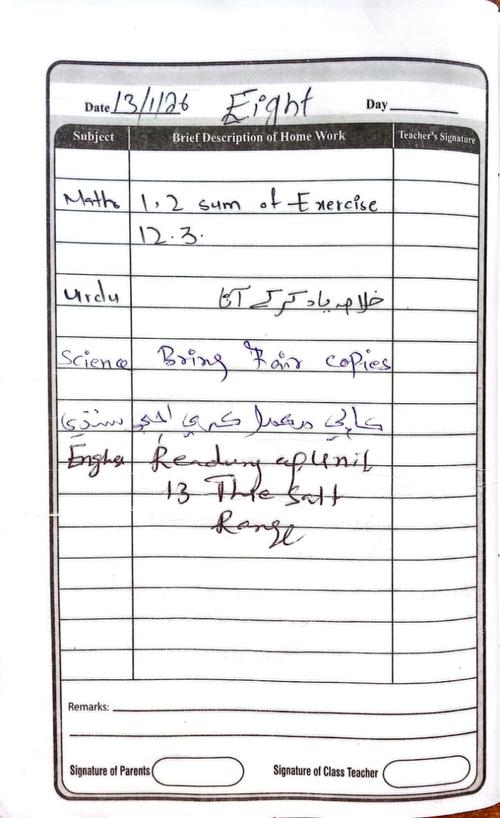 Date 13/1/26 Eight Day
Subject Brief Description of Home Work Teacher's Signature
Maths 1,2 sum of Exercise
12.3.
Urdu خلاصہ یاد کرکے آنا
Science Bring Fair copies
سنڌي ڪاپي مڪمل ڪري اچو
English Reading of Unit
13 The Salt
Range
Remarks:
Signature of Parents Signature of Class Teacher